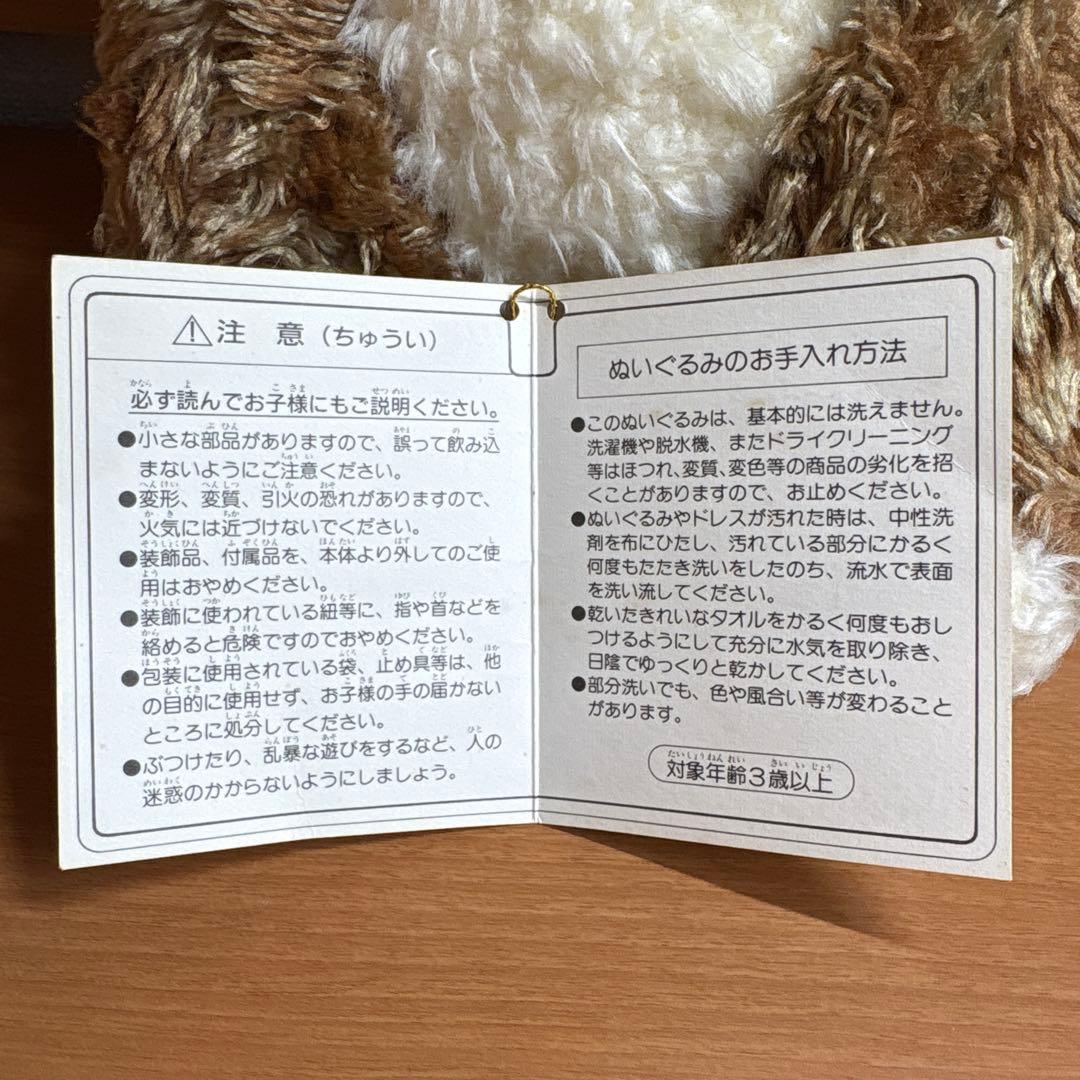 ⚠注 意（ちゅうい）
必ず読んでお子様にもご説明ください。
●小さな部品がありますので、誤って飲み込
まないようにご注意ください。
●変形、変質、引火の恐れがありますので、
火気には近づけないでください。
●装飾品、付属品を、本体より外してのご使
用はおやめください。
●装飾に使われている紐等に、指や首などを
絡めると危険ですのでおやめください。
●包装に使用されている袋、止め具等は、他
の目的に使用せず、お子様の手の届かない
ところに処分してください。
●ぶつけたり、乱暴な遊びをするなど、人の
迷惑のかからないようにしましょう。
ぬいぐるみのお手入れ方法
●このぬいぐるみは、基本的には洗えません。
洗濯機や脱水機、またドライクリーニング
等はほつれ、変質、変色等の商品の劣化を招
くことがありますので、お止めください。
●ぬいぐるみやドレスが汚れた時は、中性洗
剤を布にひたし、汚れている部分にかるく
何度もたたき洗いをしたのち、流水で表面
を洗い流してください。
●乾いたきれいなタオルをかるく何度もおし
つけるようにして充分に水気を取り除き、
日陰でゆっくりと乾かしてください。
●部分洗いでも、色や風合い等が変わること
があります。
対象年齢3歳以上